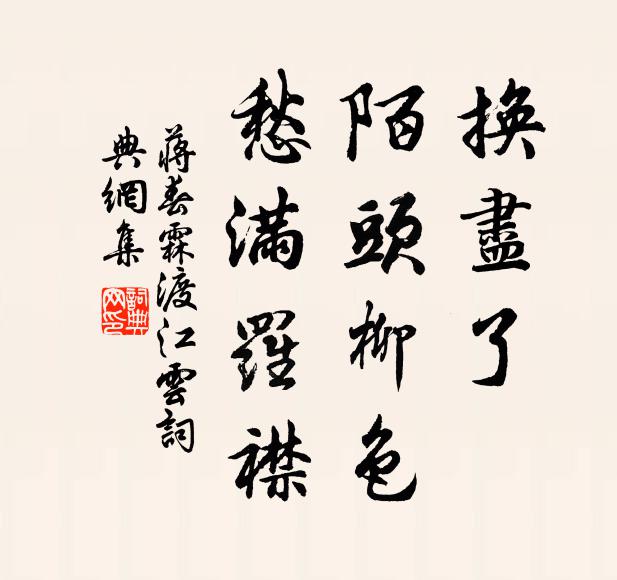 換盡了
陌頭柳色
愁滿羅襟
蔣春霖渡江雲詞
典網集
詞典網印